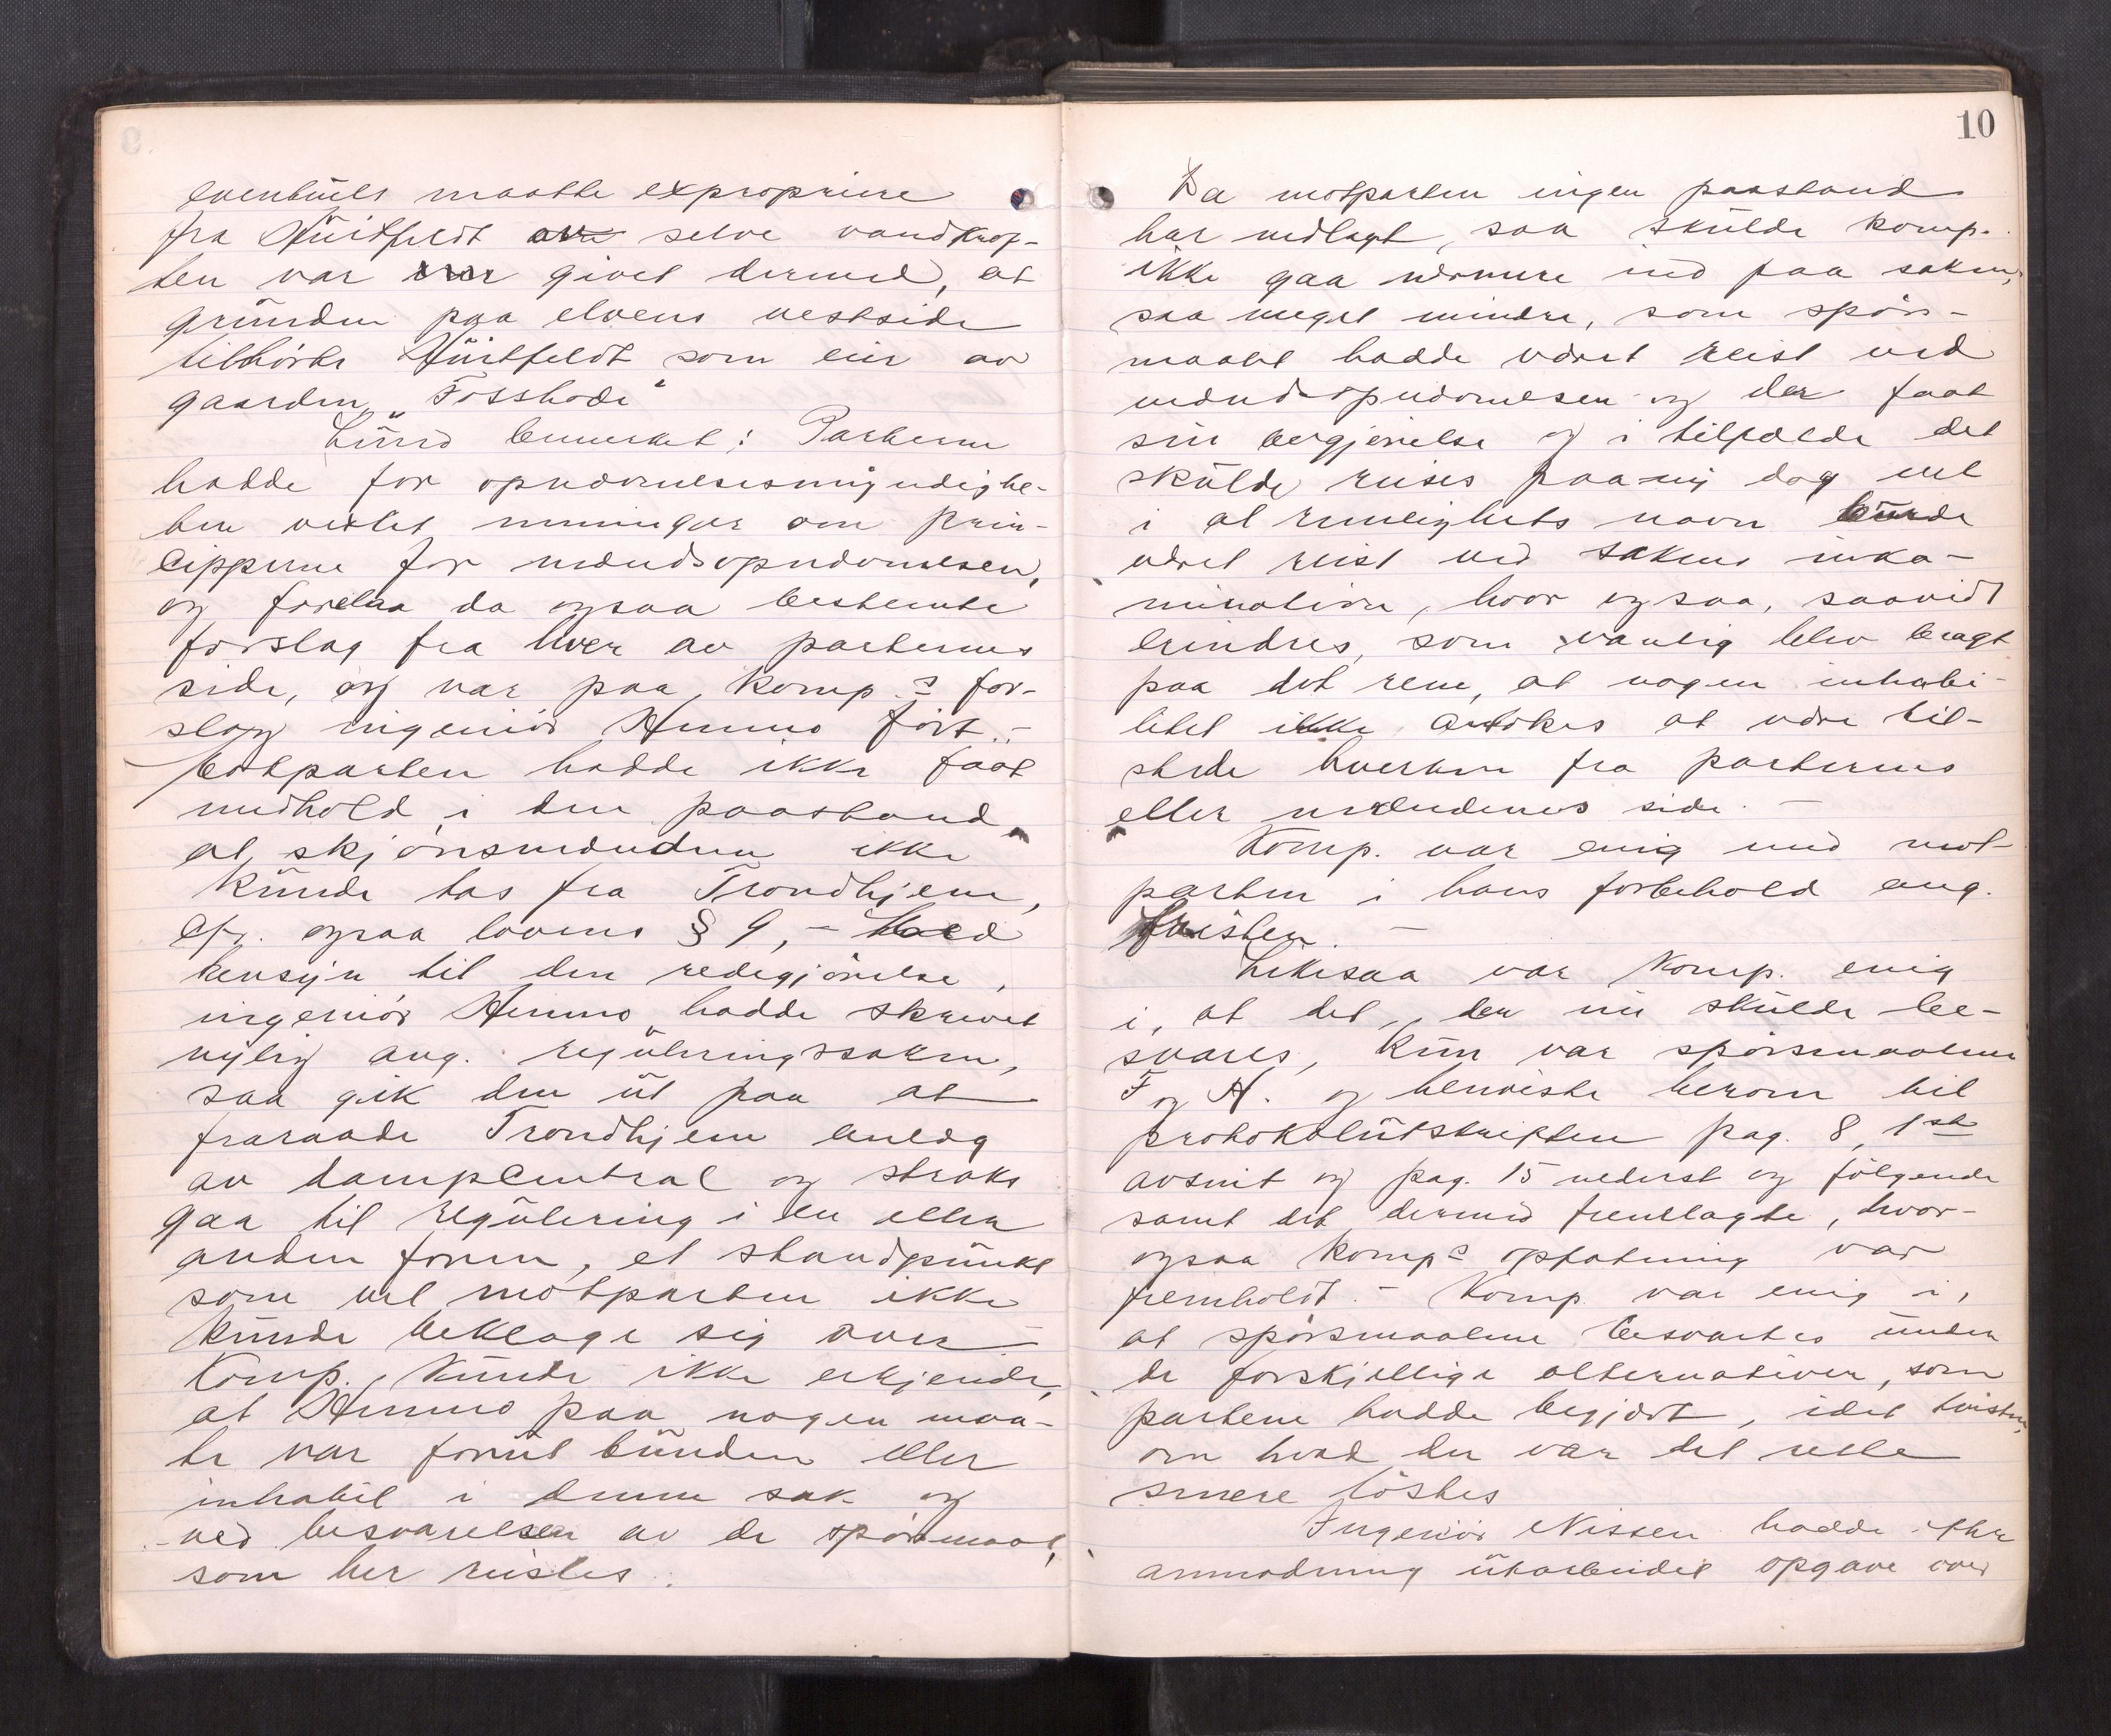 eventuelt maatte expropriere
fra Hüitfeldt selve vandkraf-
ten var givet dermed, at
grunden paa elvens vestside
tilhørte Hüitfeldt som eier av
gaarden „Fosshode“
Lund bemerket: Parterne
hadde for opnævnelsesmyndighe-
ten vexlet meninger om prin-
cipperne for mændsopnævnelsen,
og forelaa da ogsaa bestemte
forslag fra hver av parternes
side, og var paa komp.s for-
slag ingeniør Hemmo ført. -
Motparten hadde ikke faat
medhold i den paastand
at skjønsmændene ikke
kunde tas fra Trondhjem,
cfr. ogsaa lovens § 9, - Med
hensyn til den redegjørelse,
ingeniør Hemmo hadde skrevet
nylig ang. reguleringssaken,
saa gik den ut paa at
fraraade Trondhjem anlæg
av dampcentral og straks
gaa til regulering i en eller
anden form, et standpunkt
som vel motparten ikke
kunde beklage sig over
Komp. kunde ikke erkjende,
at Hemmo paa nogen maa-
te var forut bunden eller
inhabil i denne sak og
ved besvarelsen av de spørsmaal,
som her reistes.
10
Da motparten ingen paastand
har nedlagt, saa skulde komp.
ikke gaa nærmere ind paa saken,
saa meget mindre, som spørs-
maalet hadde været reist ved
mændsopnævnelsen og der faat
sin avgjørelse og i tilfælde det
skulde reises paany dog vel
i al rimelighets navn burde
været reist ved sakens inka-
mination, hvor ogsaa, saavidt
erindres, som vanlig blev bragt
paa det rene, at nogen inhabi-
litet ikke antokes at være til-
stede hverken fra parternes
eller mændenes side. -
Komp. var enig med mot-
parten i hans forbehold ang.
fristen. -
Likesaa var Komp. enig
i, at det, der nu skulde be-
svares, kun var spørsmaalene
F og H. og henviste herom til
protokolutskriften pag. 8, 1ste
avsnit og pag. 15 nederst og følgende
samt det dermed fremlagte, hvor-
ogsaa komp.s opfatning var
fremholdt. - Komp. var enig i,
at spørsmaalene besvartes under
de forskjellige alternativer, som
partene hadde begjært, idet tvisten
om hvad der var det rette
senere løstes
Ingeniør Nissen hadde efter
anmodning utarbeidet opgave over